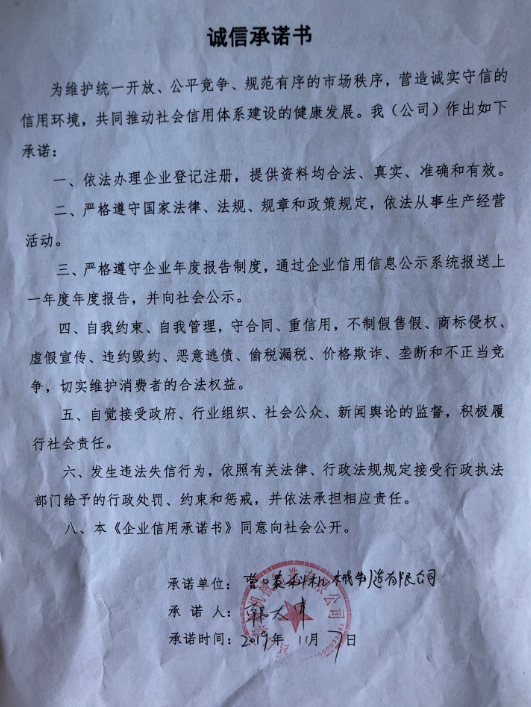 诚信承诺书
为维护统一开放、公平竞争、规范有序的市场秩序，营造诚实守信的
信用环境，共同推动社会信用体系建设的健康发展。我（公司）作出如下
承诺：
一、依法办理企业登记注册，提供资料均合法、真实、准确和有效。
二、严格遵守国家法律、法规、规章和政策规定，依法从事生产经营
活动。
三、严格遵守企业年度报告制度，通过企业信用信息公示系统报送上
一年度年度报告，并向社会公示。
四、自我约束、自我管理，守合同、重信用，不制假售假、商标侵权、
虚假宣传、违约毁约、恶意逃债、偷税漏税、价格欺诈、垄断和不正当竞
争，切实维护消费者的合法权益。
五、自觉接受政府、行业组织、社会公众、新闻舆论的监督，积极履
行社会责任。
六、发生违法失信行为，依照有关法律、行政法规规定接受行政执法
部门给予的行政处罚、约束和惩戒，并依法承担相应责任。
八、本《企业信用承诺书》同意向社会公开。
承诺单位：营口 机械制造有限公司
承 诺 人：
承诺时间：2019年 11月 日